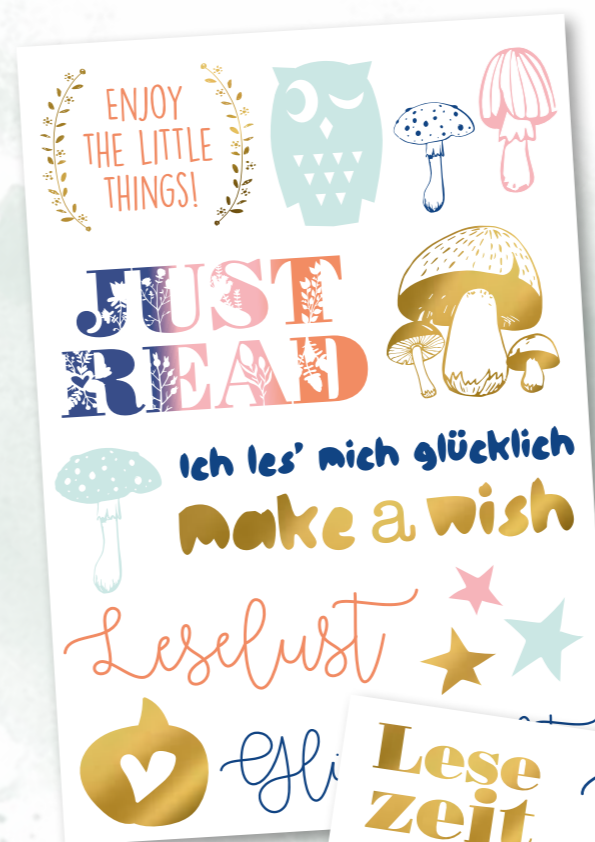 ENJOY
THE LITTLE
THINGS!
JUST
READ
Ich les' mich glücklich
make a wish
Leselust
Lese
zeit